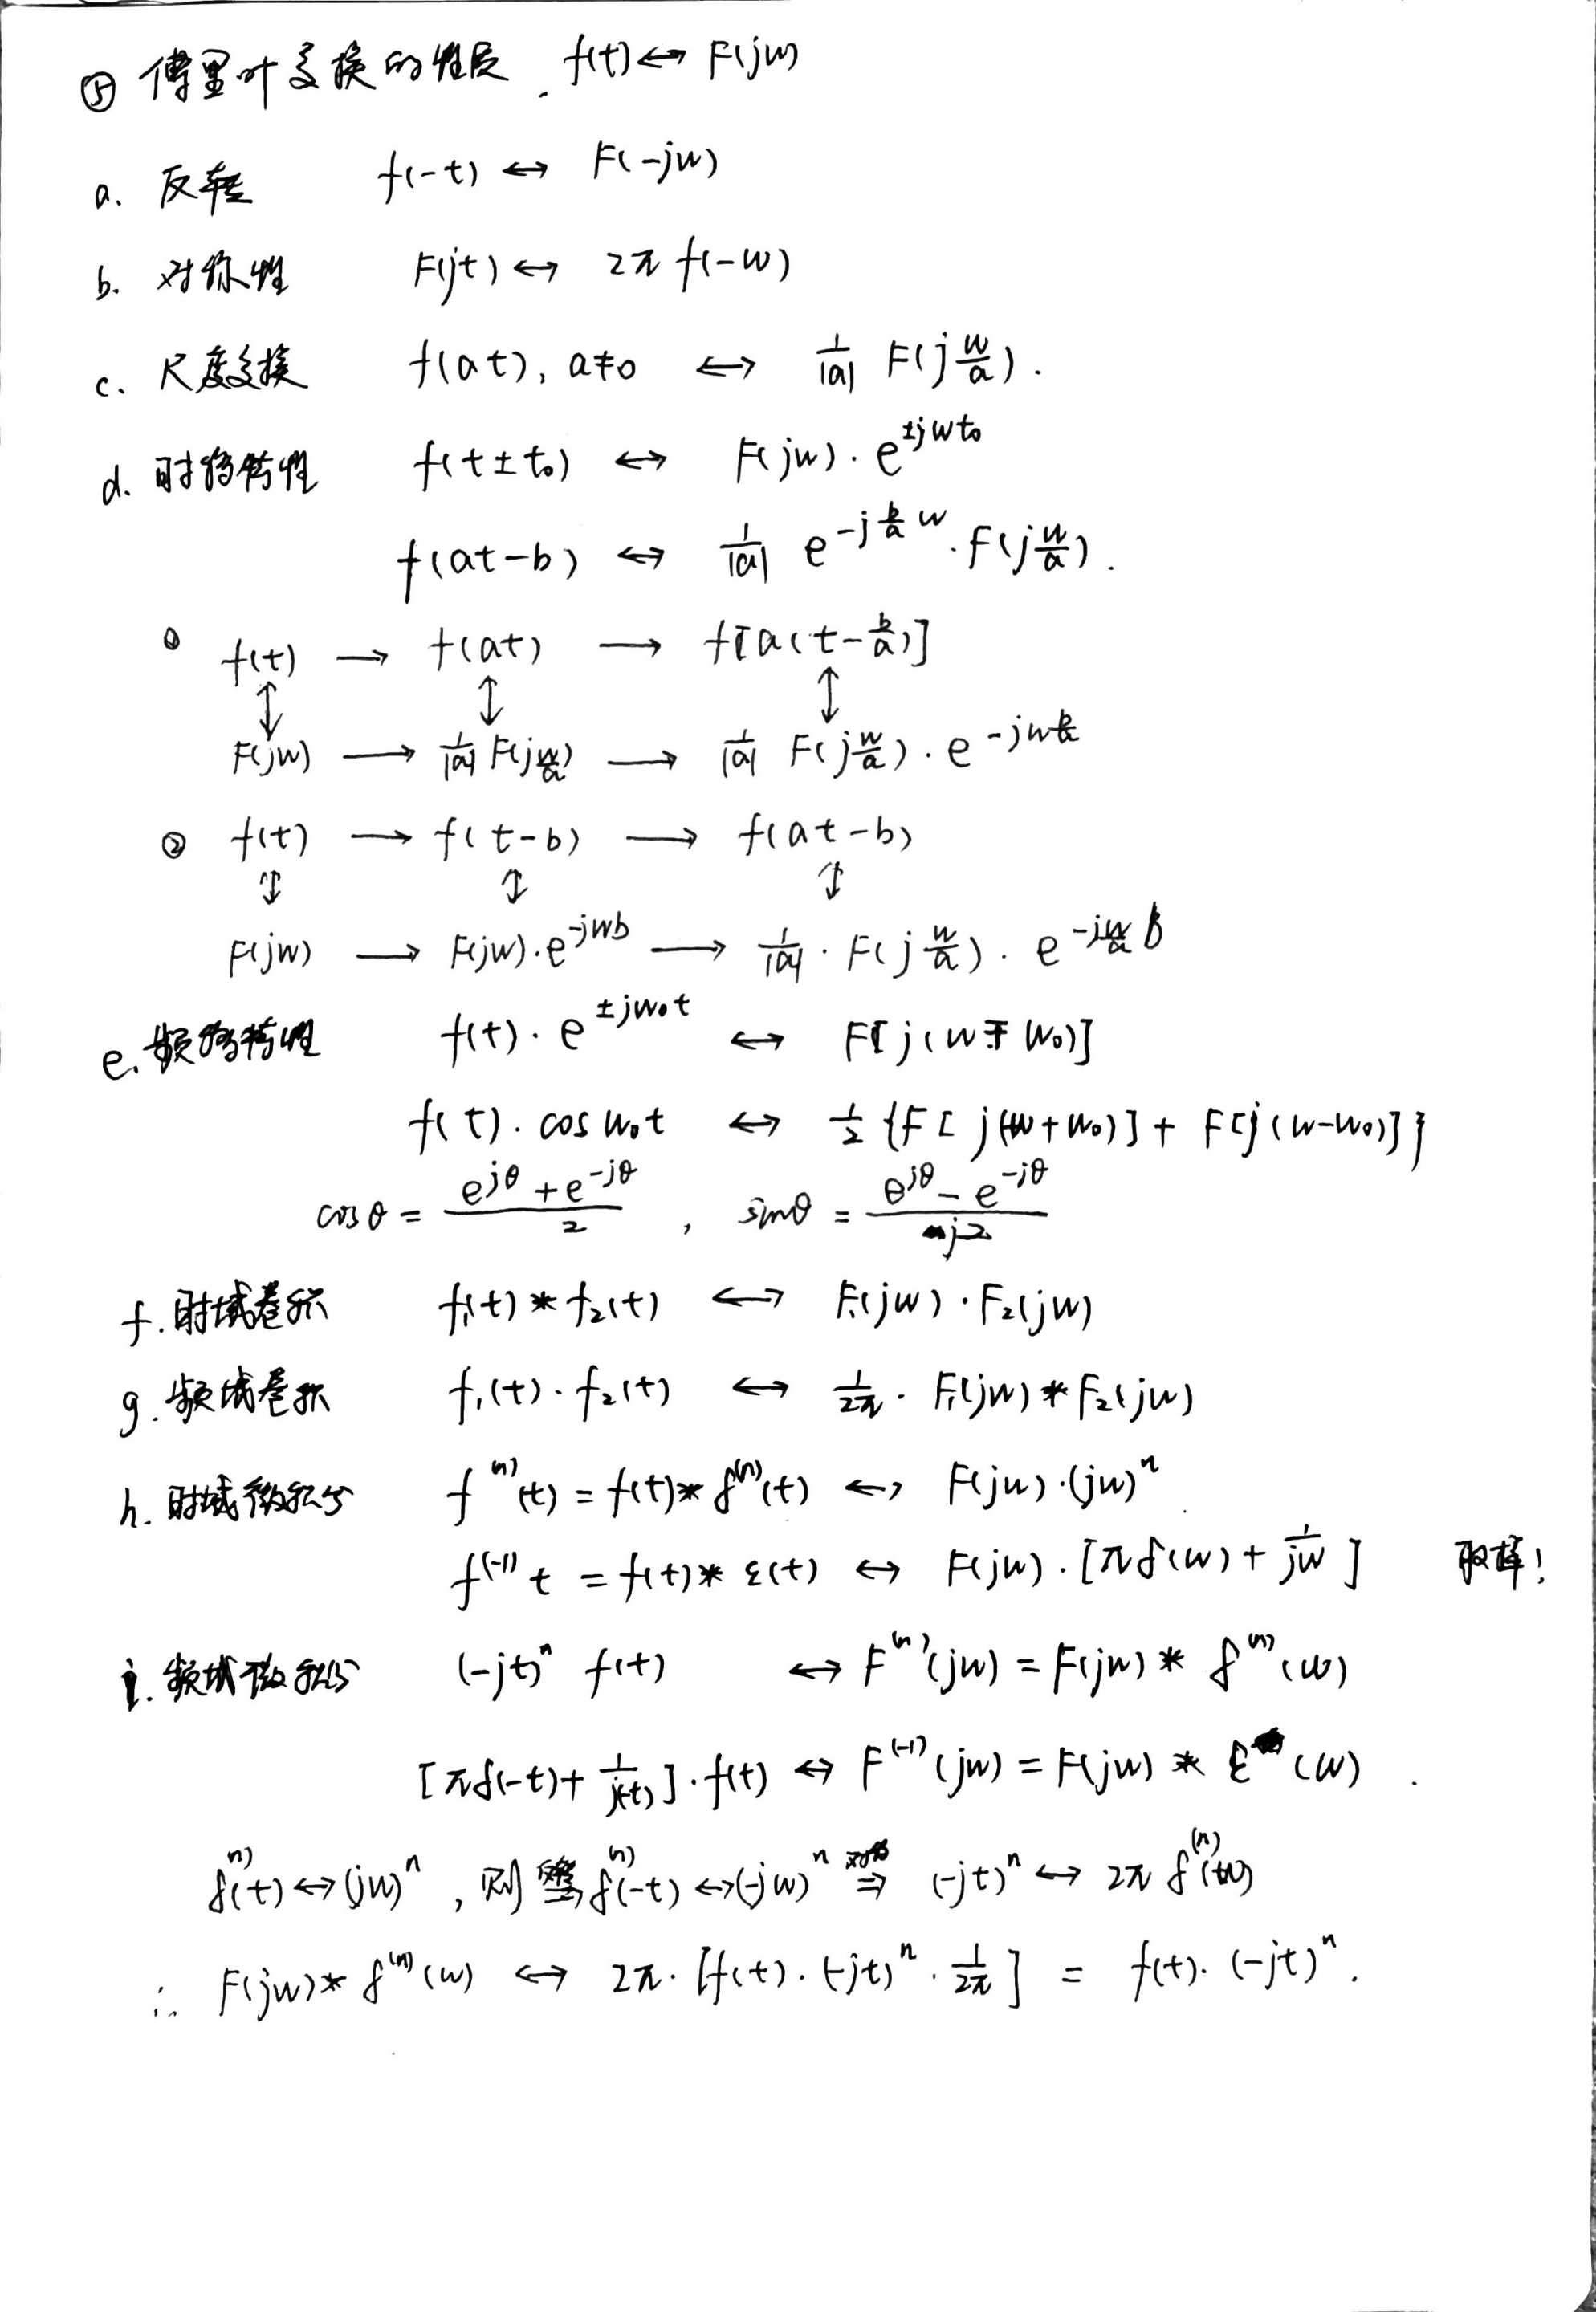 ⑤ 傅里叶变换的性质. f(t)↔F(jw)
a. 反转 f(-t) ↔ F(-jw)
b. 对称性 F(jt) ↔ 2π f(-w)
c. 尺度变换 f(at), a≠0 ↔ 1/|a| F(j w/a).
d. 时移特性 f(t±t₀) ↔ F(jw)·e^{±jwt₀}
f(at-b) ↔ 1/|a| e^{-j b/a w}·F(j w/a).
① f(t) → f(at) → f[a(t-b/a)]
↕ ↕ ↕
F(jw) → 1/|a| F(j w/a) → 1/|a| F(j w/a)·e^{-jw b/a}
② f(t) → f(t-b) → f(at-b)
↕ ↕ ↕
F(jw) → F(jw)·e^{-jwb} → 1/|a|·F(j w/a)·e^{-j w/a b}
e. 频移特性 f(t)·e^{±jw₀t} ↔ F[j(w∓w₀)]
f(t)·cos w₀t ↔ 1/2 {F[j(w+w₀)]+F[j(w-w₀)]}
cosθ = (e^{jθ}+e^{-jθ})/2 , sinθ = (e^{jθ}-e^{-jθ})/j2
f. 时域卷积 f₁(t)*f₂(t) ↔ F₁(jw)·F₂(jw)
g. 频域卷积 f₁(t)·f₂(t) ↔ 1/2π·F₁(jw)*F₂(jw)
h. 时域微积分 f^{(n)}(t)=f(t)*δ^{(n)}(t) ↔ F(jw)·(jw)^n
f^{(-1)}t = f(t)*ε(t) ↔ F(jw)·[πδ(w)+1/jw] 取样!
i. 频域微积分 (-jt)^n f(t) ↔ F^{(n)}(jw)=F(jw)*δ^{(n)}(w)
[πδ(-t)+1/j(-t)]·f(t) ↔ F^{(-1)}(jw)=F(jw)*ε(w).
δ^{(n)}(t)↔(jw)^n , 则 δ^{(n)}(-t)↔(-jw)^n 对称⇒ (-jt)^n ↔ 2π δ^{(n)}(w)
∴ F(jw)*δ^{(n)}(w) ↔ 2π·[f(t)·(-jt)^n·1/2π] = f(t)·(-jt)^n.